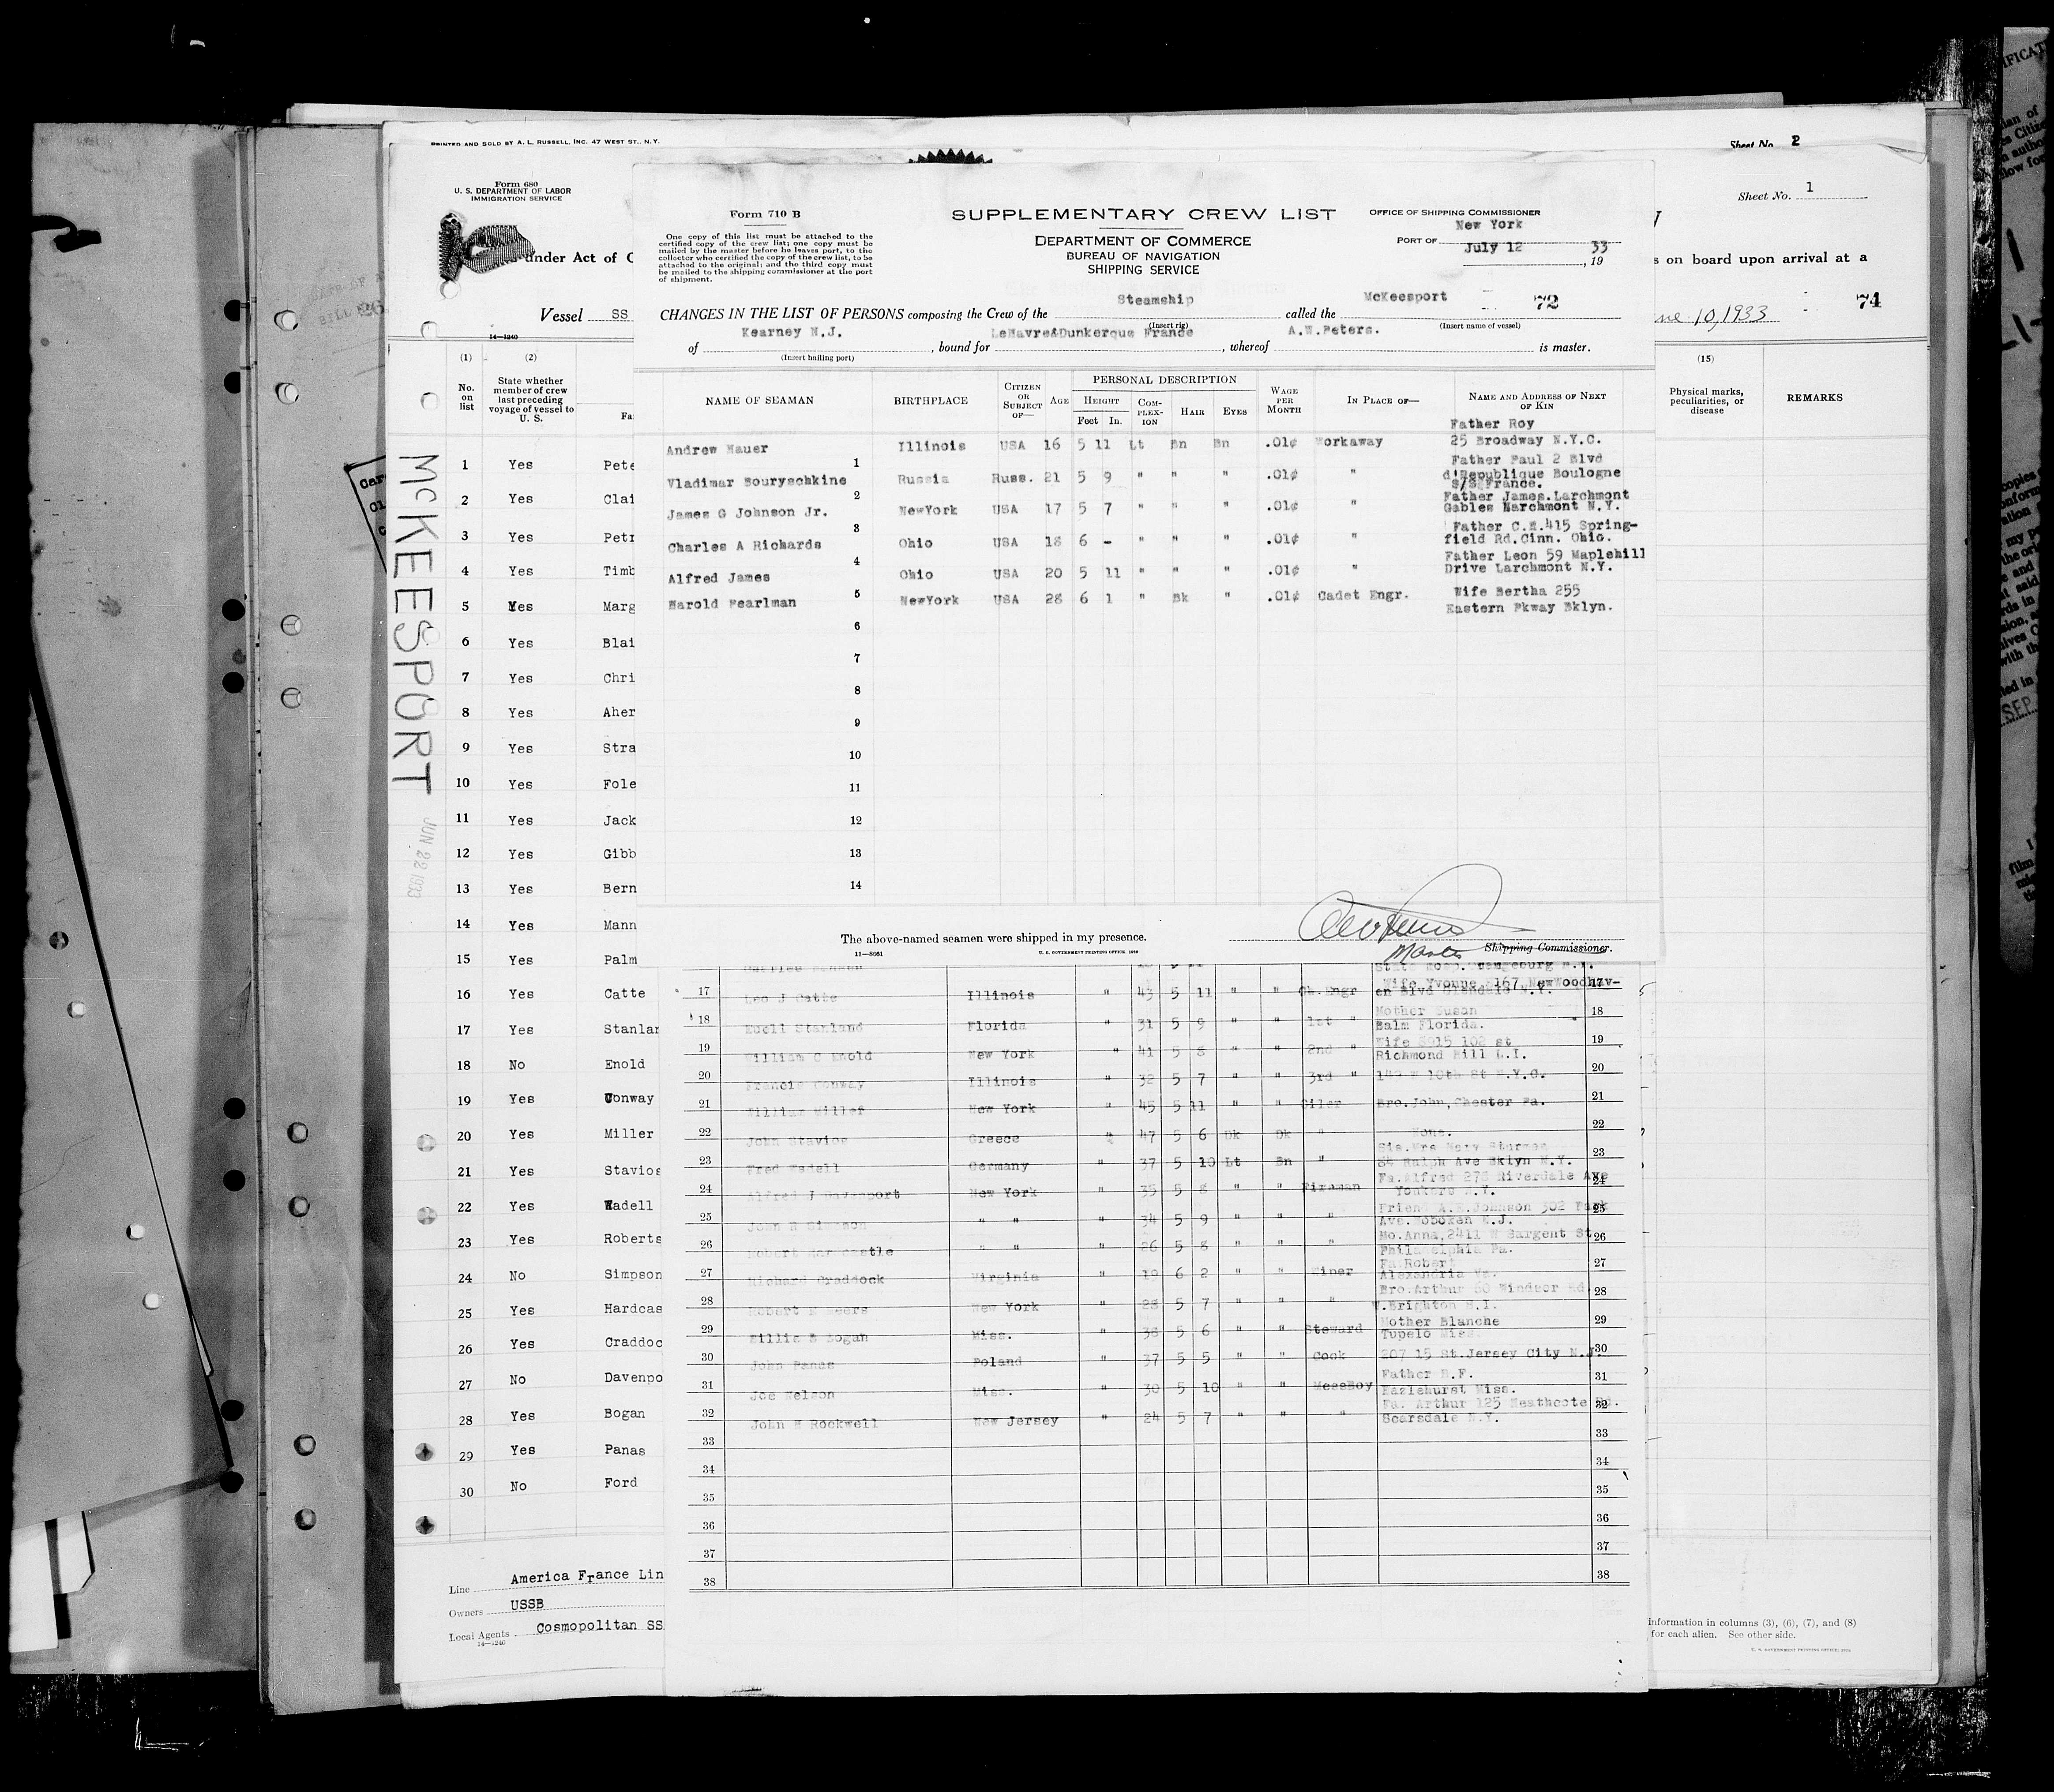 PRINTED AND SOLD BY A. L. RUSSELL, INC. 47 WEST ST., N. Y.
Sheet No. 2
Form 680
U. S. DEPARTMENT OF LABOR
IMMIGRATION SERVICE
Sheet No. 1
under Act of C
s on board upon arrival at a
Vessel SS
ne 10, 1933
74
14—1240
(1) (2)
No. on list
State whether member of crew last preceding voyage of vessel to U. S.
Fa
(15)
Physical marks, peculiarities, or disease
REMARKS
McKEESPORT
JUN 22 1933
Form 710 B
One copy of this list must be attached to the
certified copy of the crew list; one copy must be
mailed by the master before he leaves port, to the
collector who certified the copy of the crew list, to be
attached to the original; and the third copy must
be mailed to the shipping commissioner at the port
of shipment.
SUPPLEMENTARY CREW LIST
DEPARTMENT OF COMMERCE
BUREAU OF NAVIGATION
SHIPPING SERVICE
OFFICE OF SHIPPING COMMISSIONER
PORT OF New York
July 12, 19 33
CHANGES IN THE LIST OF PERSONS composing the Crew of the Steamship called the McKeesport 72
(Insert rig) (Insert name of vessel)
of Kearney N.J., bound for LeHavre&Dunkerque France, whereof A.W.Peters. is master.
(Insert hailing port)
NAME OF SEAMAN BIRTHPLACE CITIZEN OR SUBJECT OF— AGE PERSONAL DESCRIPTION HEIGHT Feet In. COMPLEXION HAIR EYES WAGE PER MONTH IN PLACE OF— NAME AND ADDRESS OF NEXT OF KIN
Andrew Hauer 1 Illinois USA 16 5 11 Lt Bn Bn .01¢ Workaway Father Roy 25 Broadway N.Y.C.
Vladimar Bouryschkine 2 Russia Russ. 21 5 9 " " " .01¢ " Father Paul 2 Blvd d'Republique Boulogne S/S France.
James G Johnson Jr. 3 NewYork USA 17 5 7 " " " .01¢ " Father James.Larchmont Gables Marchmont N.Y.
Charles A Richards 4 Ohio USA 18 6 - " " " .01¢ " Father C.M.415 Spring-field Rd.Cinn. Ohio.
Alfred James 5 Ohio USA 20 5 11 " " " .01¢ " Father Leon 59 Maplehill Drive Larchmont N.Y.
Harold Pearlman 6 NewYork USA 28 6 1 " Bk " .01¢ Cadet Engr. Wife Bertha 255 Eastern Pkway Bklyn.
7
8
9
10
11
12
13
14
The above-named seamen were shipped in my presence.
Master Shipping Commissioner.
11—8061
U. S. GOVERNMENT PRINTING OFFICE
1 Yes Pete
2 Yes Clai
3 Yes Petr
4 Yes Timb
5 Yes Marg
6 Yes Blai
7 Yes Chri
8 Yes Aher
9 Yes Stra
10 Yes Fole
11 Yes Jack
12 Yes Gibb
13 Yes Bern
14 Yes Mann
15 Yes Palm
16 Yes Catte
17 Yes Stanlan
18 No Enold
19 Yes Conway
20 Yes Miller
21 Yes Stavios
22 Yes Wadell
23 Yes Roberts
24 No Simpson
25 Yes Hardcas
26 Yes Craddoc
27 No Davenpo
28 Yes Bogan
29 Yes Panas
30 No Ford
17 Leo J Catte Illinois " 43 5 11 " " Ch.Engr Wife Yvonne 167 NewWoodhav-en Blvd N.Y. 17
18 Ezell Stanland Florida " 31 5 9 " " 1st " Mother Susan Balm Florida. 18
19 William C Enold New York " 41 5 8 " " 2nd " Wife 8915 102 st Richmond Hill L.I. 19
20 Francis Conway Illinois " 32 5 7 " " 3rd " 149 W 10th St N.Y.C. 20
21 William Miller New York " 45 5 11 " " Oiler Bro.John,Chester Pa. 21
22 John Stavios Greece " 47 5 6 Dk Dk " None. 22
23 Fred Wadell Germany " 37 5 10 Lt Bn " Sis.Mrs Mary Sturges 84 Ralph Ave Bklyn N.Y. 23
24 Alfred J Davenport New York " 35 5 8 " " Fireman Fa.Alfred 273 Riverdale Ave Yonkers N.Y. 24
25 John R Simpson " " " 34 5 9 " " " Friend A.E.Johnson 302 Park Ave.Hoboken N.J. 25
26 Robert Hardcastle " " " 26 5 8 " " " Mo.Anna,2411 W Sargent St Philadelphia Pa. 26
27 Richard Craddock Virginia " 19 6 2 " " Wiper Fa.Robert Alexandria Va. 27
28 New York " 28 5 7 " " " Bro.Arthur 60 Windsor Rd W.Brighton S.I. 28
29 Willie B Bogan Miss. " 38 5 6 " " Steward Mother Blanche Tupelo Miss 29
30 John Panas Poland " 37 5 5 " " Cook 207 15 St.Jersey City N.J. 30
31 Joe Nelson Miss. " 30 5 10 " " MessBoy Father B.F. Hazlehurst Miss. 31
32 John H Rockwell New Jersey " 24 5 7 " " " Fa. Arthur 125 Heathcote Rd. Scarsdale N.Y. 32
33 33
34 34
35 35
36 36
37 37
38 38
Line America France Lin
Owners USSB
Local Agents Cosmopolitan SS
14—1240
information in columns (3), (6), (7), and (8)
for each alien. See other side.
U. S. GOVERNMENT PRINTING OFFICE